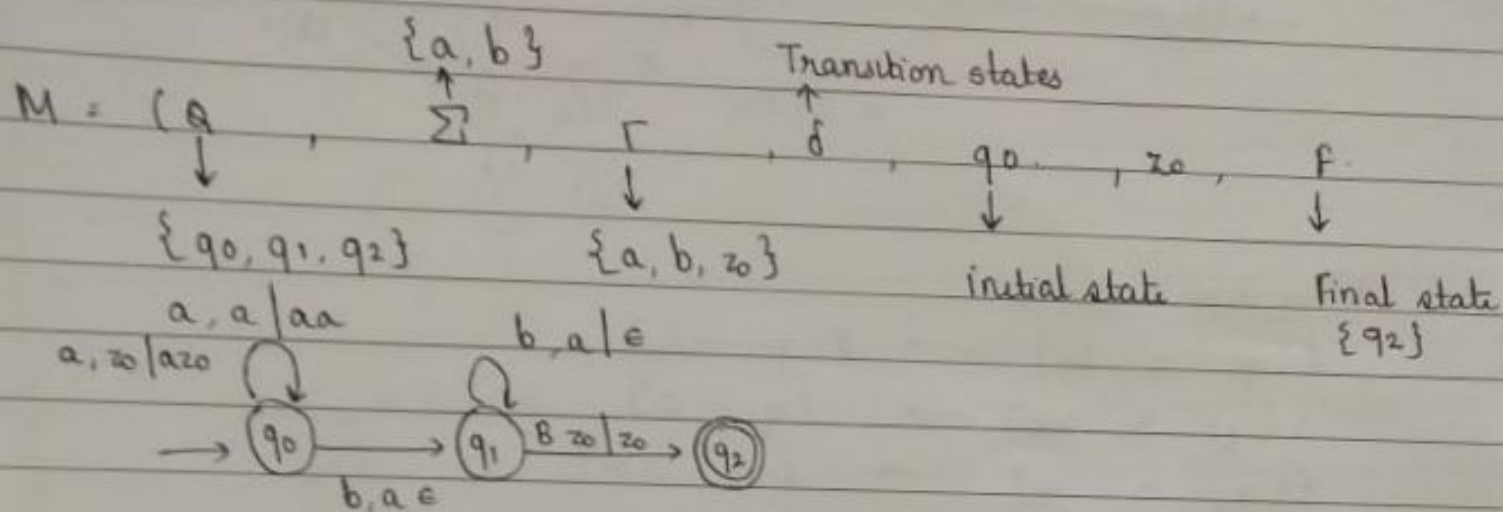 {a, b} Transition states
M = (Q , Σ , Γ , δ , q0 , z0 , F
{q0, q1, q2} {a, b, z0} initial state Final state
{q2}
a, a | aa b, a | ϵ
a, z0 | az0
q0 q1 B z0 | z0 q2
b, a ϵ